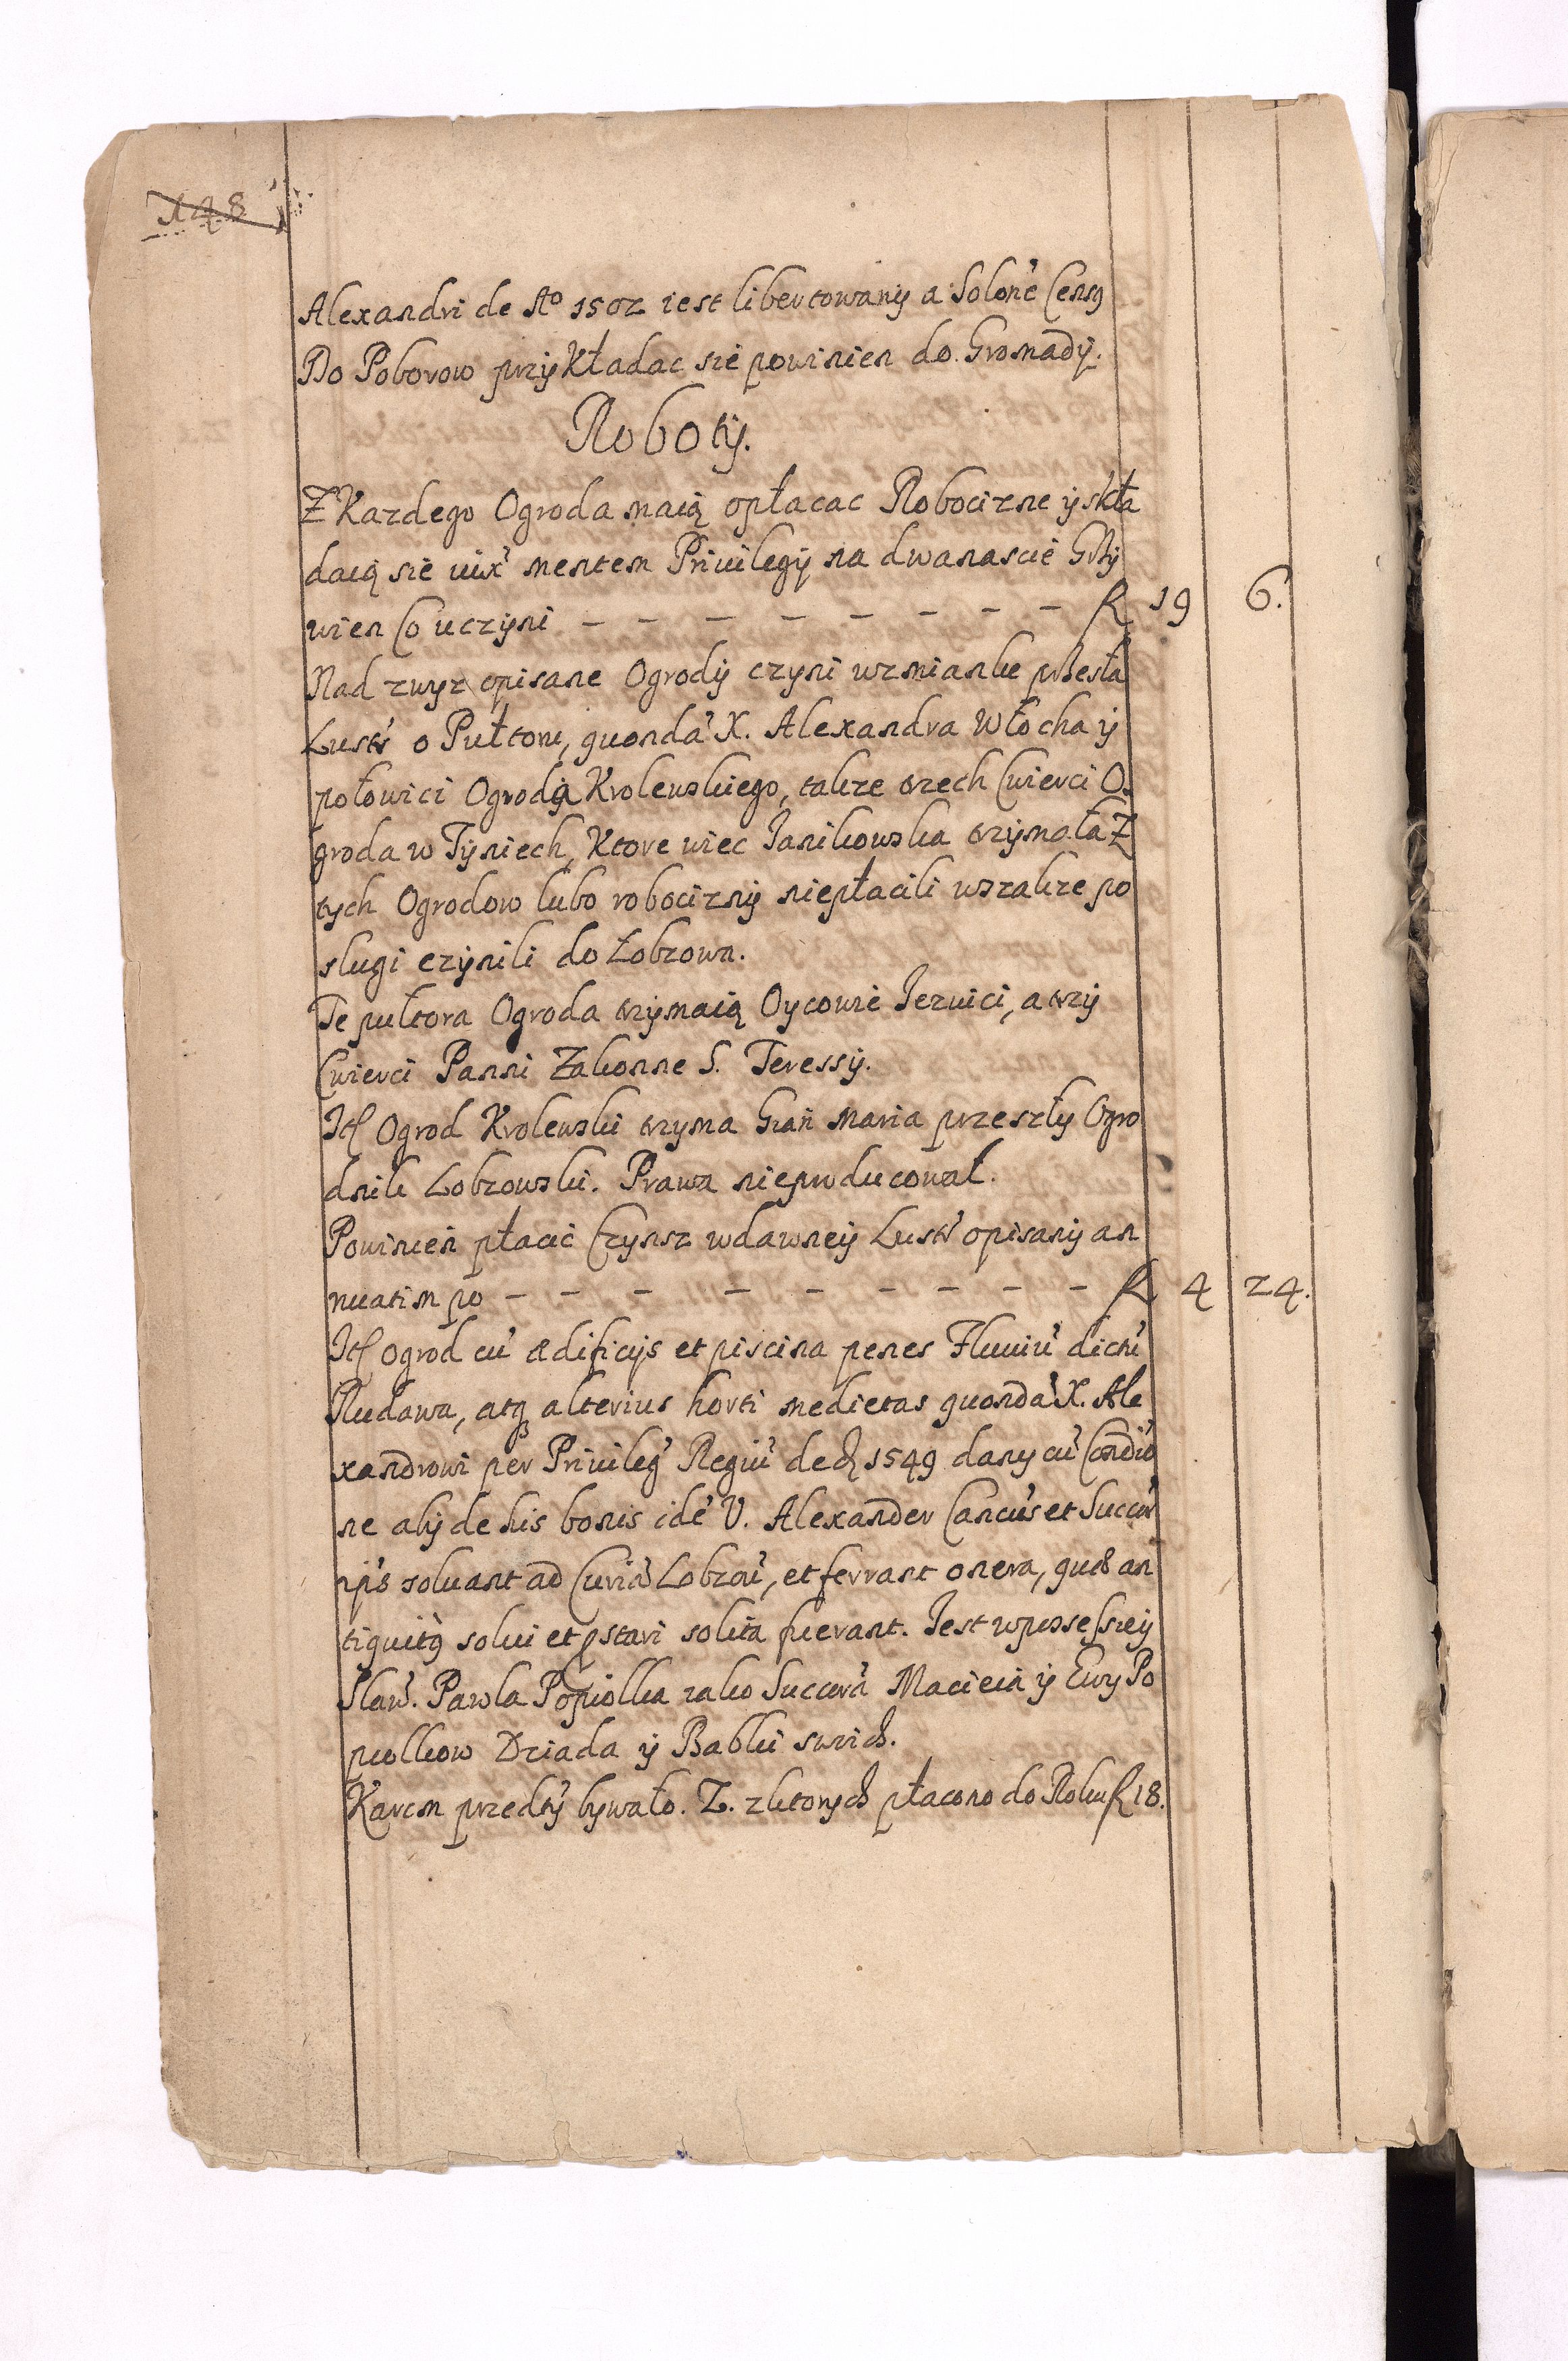 148
Alexandri de Aº 1502 iest libertowany a Solone Censq
Do Poborow przykładac sie powinien do Gromady.
Roboty.
Z Kazdego Ogroda maią opłacac Robocizne y skła
daią sie iux mentem Privilegij na dwanascie Grzy
wien Co uczyni - - - - - - - - R 19 6.
Nad zwyz opisane Ogrody czyni wzmianke przesła
Lustr o Pułtoru, quonda X. Alexandra Włocha y
połowici Ogroda Krolewskiego, takze trzech Cwierci O.
groda w Tyniech, Ktore wiec Janikowska trzymała Z
tych Ogrodow lubo robocizny niepłacili wszakze po
slugi czynili do Łobzowa.
Te pułtora Ogroda trzymaią Oycowie Jezuici, a trzy
Cwierci Panni Zakonne S. Teressy.
Itl Ogrod Krolewski trzyma Gian Maria przeszły Ogro
dnik Lobzowski. Prawa nieproducował.
Powinien płacic Czynsz wdawney Lustr opisany an
nuatim po - - - - - - - - - R 4 24.
Itl Ogrod cu ædificijs et piscina penes Fluuiu dictu
Rudawa, atq alterius horti medietas quonda X. Ale
xandrowi per Priuileg Regiu de 1549 dany cu Condio
ne aby de his bonis ide V. Alexander Cancus et Succrs
ips soluant ad Curia Lobzou, et ferrant onera, quæ an
tiquitq solui et pstari solita fuerant. Jest wpossessiey
Slaw. Pawla Popiolka iako Succora Macieia y Ewy Po
piolkow Dziada y Babki swich.
Karcm przedty bywało. Z. zktorych płacono do Roku R 18.